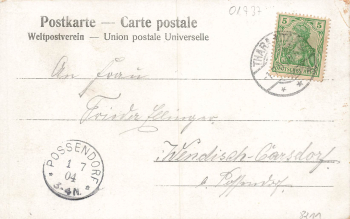 01737
Postkarte — Carte postale
Weltpostverein — Union postale Universelle
5 5
THARA
An Frau
Frieda Ellinger
Wendisch-Carsdorf
b. Possendorf
* POSSENDORF *
1 7
04
3-4N.